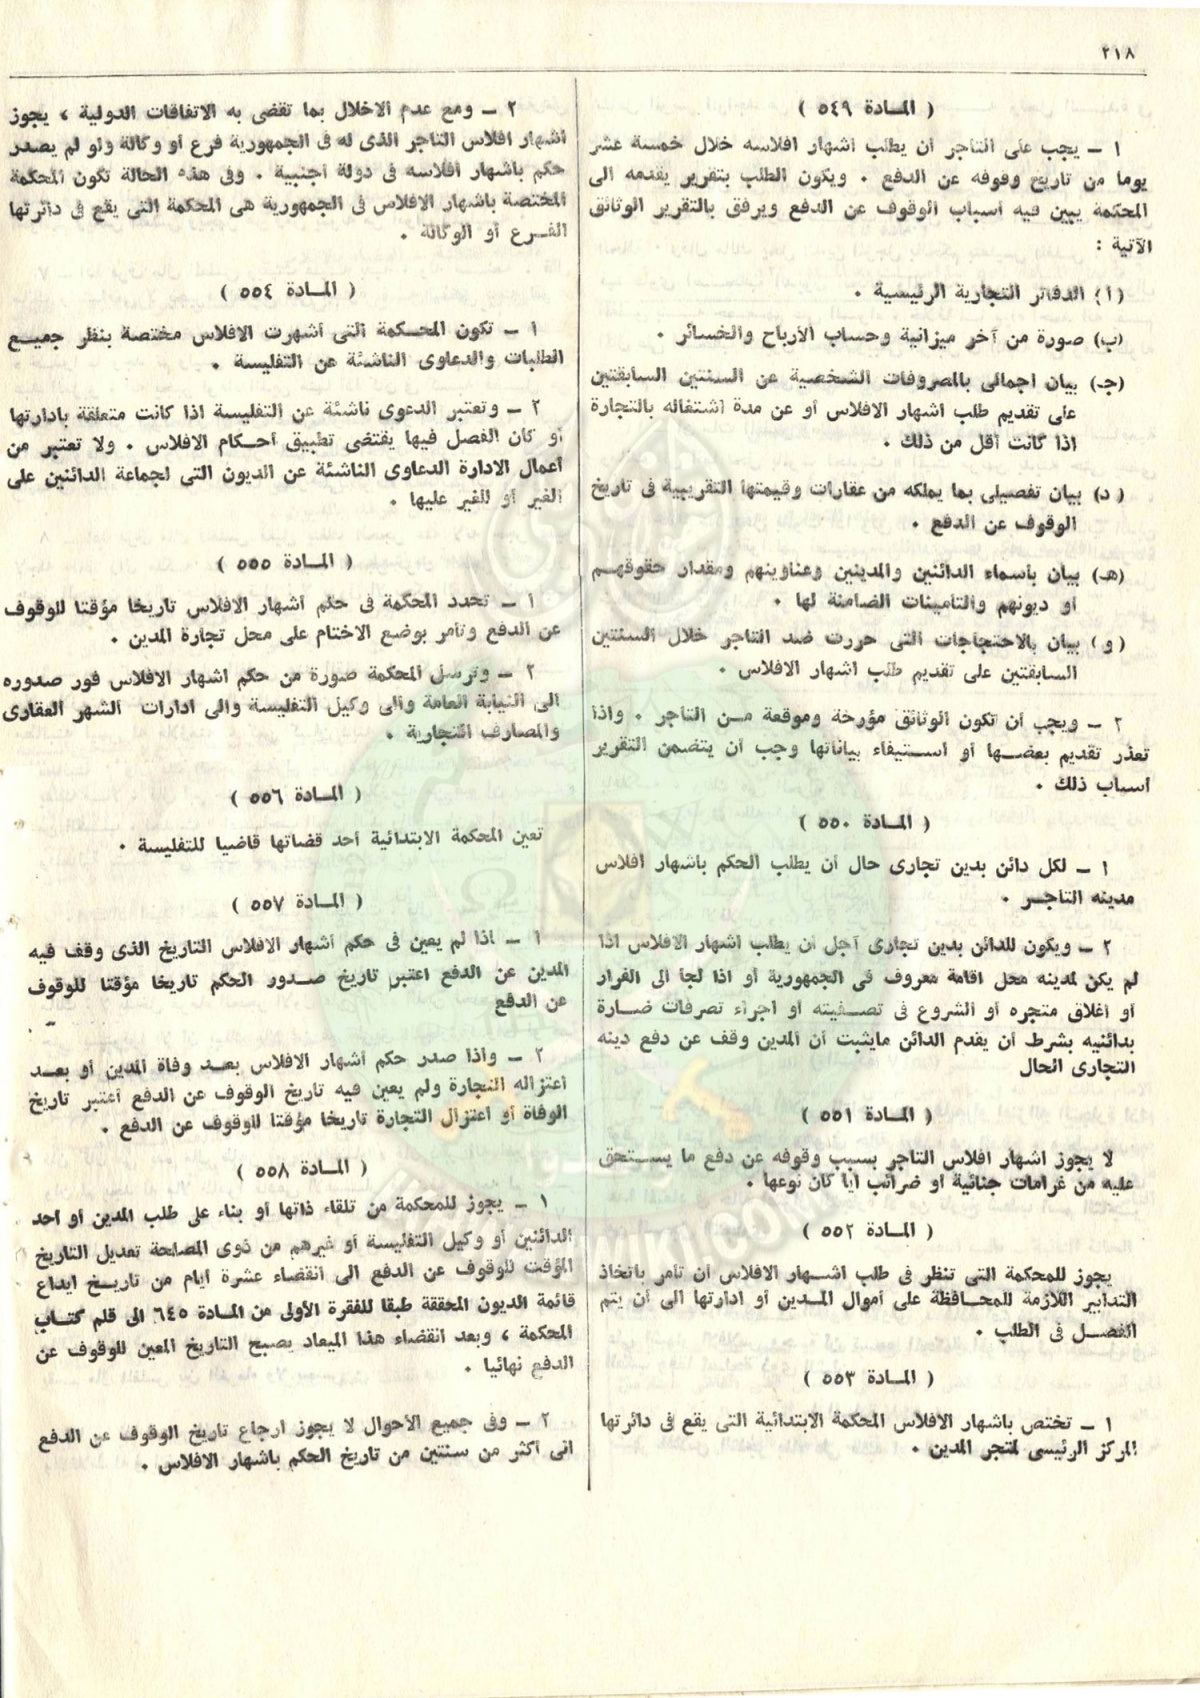 ٢١٨
( المــادة ٥٤٩ )
١ – يجب على التاجر أن يطلب اشهار افلاسه خلال خمسة عشر
يوما من تاريخ وقوفه عن الدفع . ويكون الطلب بتقرير يقدمه الى
المحكمة يبين فيه أسباب الوقوف عن الدفع ويرفق بالتقرير الوثائق
الآتية :
(أ) الدفاتر التجارية الرئيسية .
(ب) صورة من آخر ميزانية وحساب الأرباح والخسائر .
(جـ) بيان اجمالى بالمصروفات الشخصية عن السنتين السابقتين
على تقديم طلب اشهار الافلاس أو عن مدة اشتغاله بالتجارة
اذا كانت أقل من ذلك .
(د) بيان تفصيلى بما يملكه من عقارات وقيمتها التقريبية فى تاريخ
الوقوف عن الدفع .
(هـ) بيان بأسماء الدائنين والمدينين وعناوينهم ومقدار حقوقهــم
أو ديونهم والتأمينات الضامنة لها .
(و) بيان بالاحتجاجات التى حررت ضد التاجر خلال السنتين
السابقتين على تقديم طلب اشهار الافلاس .
٢ – ويجب أن تكون الوثائق مؤرخة وموقعة مــن التاجر . واذا
تعذر تقديم بعضــها أو استيفاء بياناتها وجب أن يتضمن التقرير
أسباب ذلك .
( المــادة ٥٥٠ )
١ – لكل دائن بدين تجارى حال أن يطلب الحكم باشهار افلاس
مدينه التاجــر .
٢ – ويكون للدائن بدين تجارى آجل أن يطلب اشهار الافلاس اذا
لم يكن لمدينه محل اقامة معروف فى الجمهورية أو اذا لجأ الى الفرار
أو اغلاق متجره أو الشروع فى تصــفيته أو اجراء تصرفات ضــارة
بدائنيه بشرط أن يقدم الدائن مايثبت أن المدين وقف عن دفع دينه
التجارى الحال
( المــادة ٥٥١ )
لا يجوز اشهار افلاس التاجر بسبب وقوفه عن دفع ما يســتحق
عليه من غرامات جنائية أو ضرائب أيا كان نوعها .
( المــادة ٥٥٢ )
يجوز للمحكمة التى تنظر فى طلب اشهــار الافلاس أن تأمر باتخاذ
التدابير اللازمة للمحــافظة على أموال المــدين أو ادارتها الى أن يتم
الفصــل فى الطلب .
( المــادة ٥٥٣ )
١ – تختص باشهار الافلاس المحكمة الابتدائية التى يقع فى دائرتها
المركز الرئيسى لمتجر المدين .
٢ – ومع عدم الاخلال بما تقضى به الاتفاقات الدولية ، يجوز
اشهار افلاس التاجر الذى له فى الجمهورية فرع أو وكالة ولو لم يصدر
حكم باشهار افلاسه فى دولة أجنبية . وفى هذه الحالة تكون المحكمة
المختصة باشهار الافلاس فى الجمهورية هى المحكمة التى يقع فى دائرتها
الفــرع أو الوكالة .
( المــادة ٥٥٤ )
١ – تكون المحــكمة التى أشهرت الافلاس مختصة بنظر جميــع
الطلبات والدعاوى الناشئة عن التفليسة .
٢ – وتعتبر الدعوى ناشئة عن التفليسة اذا كانت متعلقة بادارتها
أو كان الفصل فيها يقتضى تطبيق أحــكام الافلاس . ولا تعتبر من
أعمال الادارة الدعاوى الناشئة عن الديون التى لجماعة الدائنين على
الغير أو للغير عليها .
( المــادة ٥٥٥ )
١ – تحدد المحكمة فى حكم أشهار الافلاس تاريخا مؤقتا للوقوف
عن الدفع وتأمر بوضع الاختام على محل تجارة المدين .
٢ – وترسل المحكمة صورة من حكم اشهار الافلاس فور صدوره
الى النيابة العامة والى وكيل التفليسة والى ادارات الشهر العقارى
والمصارف التجارية .
( المــادة ٥٥٦ )
تعين المحكمة الابتدائية أحد قضاتها قاضيا للتفليسة .
( المــادة ٥٥٧ )
١ – اذا لم يعين فى حكم أشهار الافلاس التاريخ الذى وقف فيه
المدين عن الدفع اعتبر تاريخ صــدور الحكم تاريخا مؤقتا للوقوف
عن الدفع
٢ – واذا صدر حكم أشهار الافلاس بعــد وفاة المدين أو بعــد
اعتزاله التجارة ولم يعين فيه تاريخ الوقوف عن الدفع أعتبر تاريخ
الوفاة أو اعتزال التجارة تاريخا مؤقتا للوقوف عن الدفع .
( المــادة ٥٥٨ )
١ – يجوز للمحكمة من تلقاء ذاتها أو بناء على طلب المدين أو احد
الدائنين أو وكيل التفليسة أو غيرهم من ذوى المصلحة تعديل التاريخ
المؤقت للوقوف عن الدفع الى أنقضاء عشرة ايام من تاريــخ ايداع
قائمة الديون المحققة طبقا للفقرة الأولى من المادة ٦٤٥ الى قلم كتــاب
المحكمة ، وبعد انقضاء هذا الميعاد يصبح التاريخ المعين للوقوف عن
الدفع نهائيا .
٢ – وفى جميع الأحوال لا يجوز ارجاع تاريخ الوقوف عن الدفع
الى أكثر من سنتين من تاريخ الحكم باشهار الافلاس .